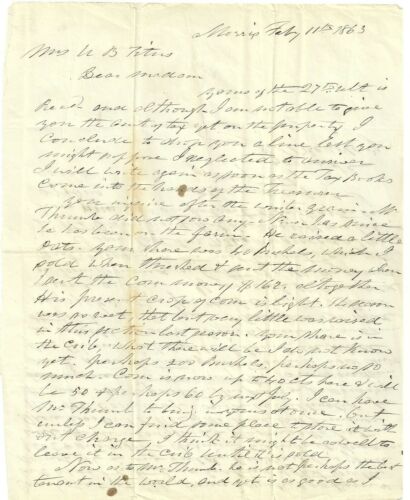 Morris Feby 11th 1863
Mrs U B Titus
Dear madam
Yours of the 27th ult is
Recd and although I am not able to give
you the amt of tax yet on the property I
conclude to drop you a line lest you
might suppose I neglected to answer
I will write again as soon as the Tax Books
come into the hands of the Treasurer
You inquire after the winter grain Mr
Thumb did not sow any & never has since
he has been on the farm. He raised a little
oats. your share was 40 Bushels, which I
sold when threshed & sent the money when
I sent the corn money $162. altogether
His present crop of corn is light. The season
was so wet that but very little was raised
in this section last season. your share is in
the crib. what there will be I do not know
yet. perhaps 200 Bushels, perhaps not so
much. Corn is now up to 40 cts here & will
be 50 & perhaps 60 by next July. I can have
Mr Thumb to bring at once. but
unless I can find some place to store it with
out charge, I think it might be as well to
leave it in the crib until it is sold
Now as to Mr Thumb. he is not perhaps the best
tenant in the world, and yet is as good as I